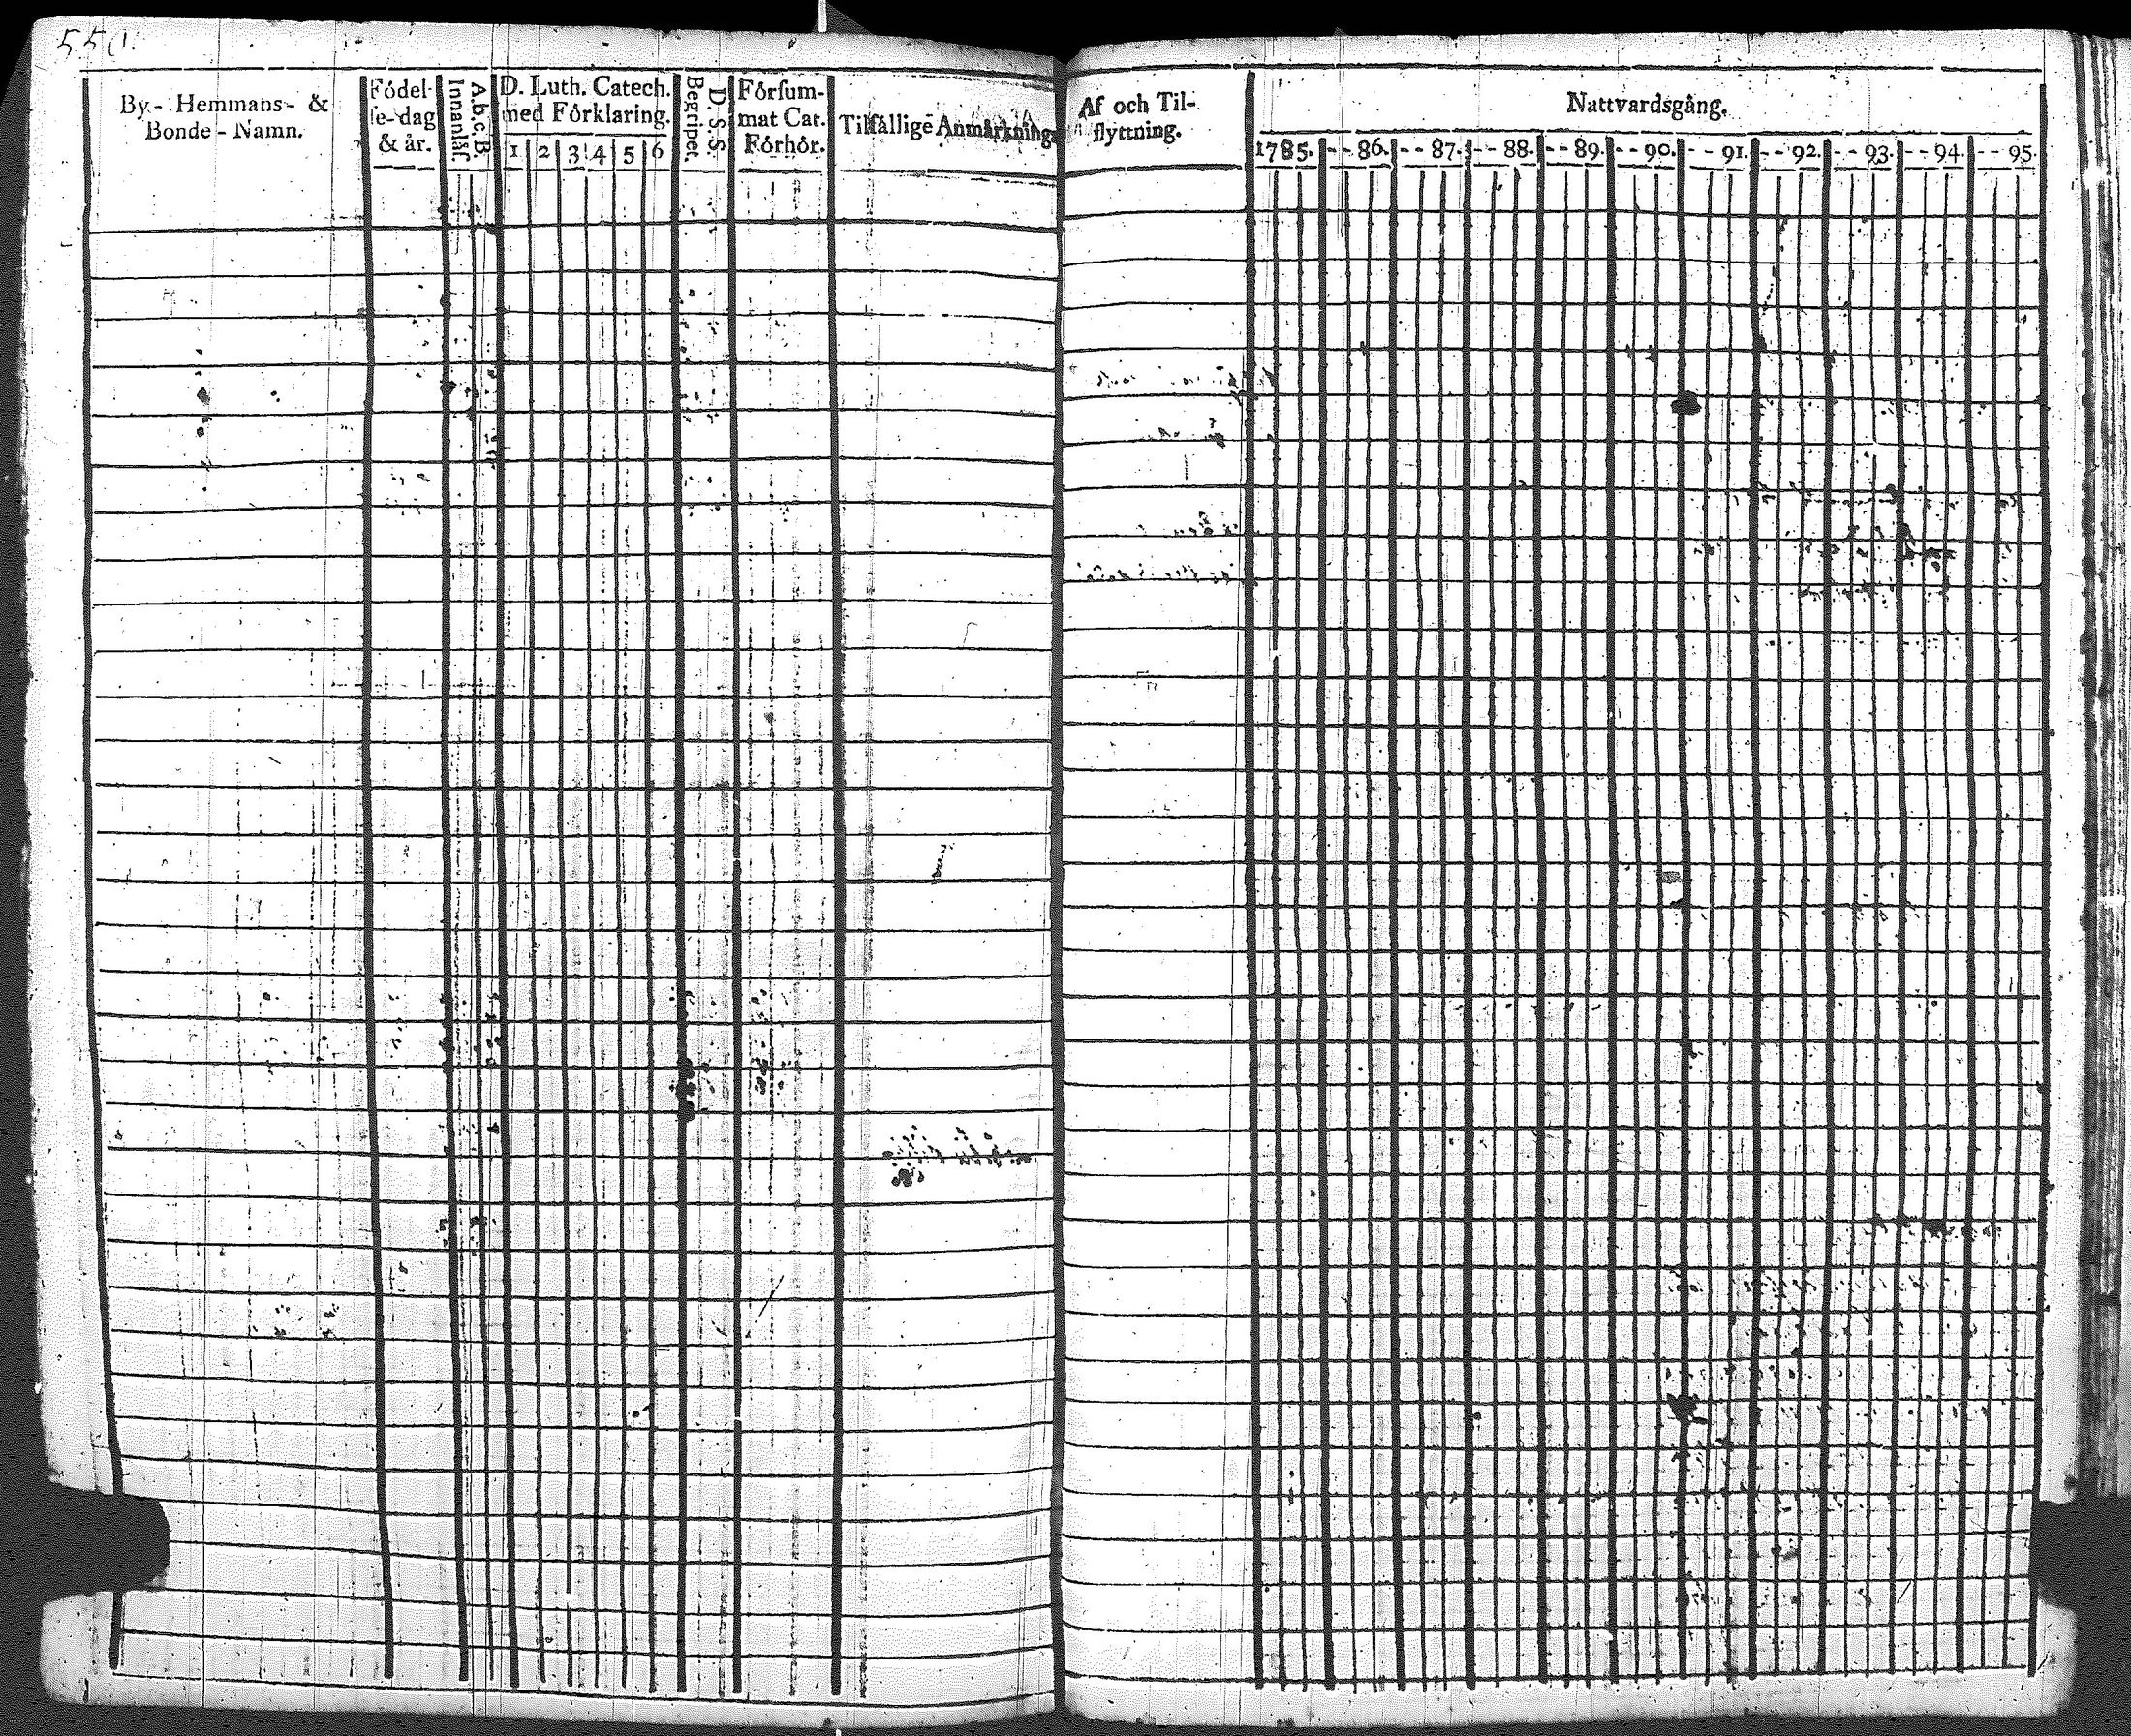 550.
By.- Hemmans- &
Bonde-Namn.
Födel-
se-dag
& år.
Innanläs.
A.b.c.B.
D. Luth. Catech.
med Förklaring.
1 2 3 4 5 6
Begripet.
D. S. S.
Försum-
mat Cat.
Förhör.
Tilfällige Anmärkning.
Af och Til-
flyttning.
Nattvardsgång.
1785. - - 86. - - 87. - - 88. - - 89. - - 90. - - 91. - - 92. - - 93. - - 94. - - 95.